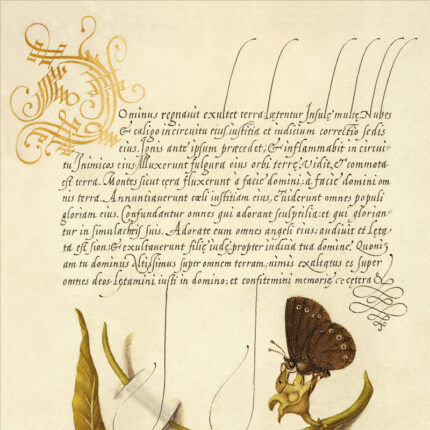 Dominus regnavit exultet terra Lætentur Insulę multę. Nubes
& caligo in circuitu eius iustitia et iudicium correctio sedis
eius. Ignis ante ipsum præcedet, & inflammabit in circui-
tu Inimicos eius. Illuxerunt fulgura eius orbi terrę. Vidit, & commota
est terra. Montes sicut cęra fluxerunt à facie domini; à facie domini om
nis terra. Annuntiaverunt cœli iustitiam eius, & uiderunt omnes populi
gloriam eius. Confundantur omnes qui adorant sculptilia: et qui glorian-
tur in simulachris suis. Adorate eum omnes angeli eius; audiuit et Lęta
ta est sion: & exultauerunt filię iudę, propter iudicia tua domine. Quoni
am tu dominus Altissimus super omnem terram, nimis exaltatus es super
omnes deos. Lętamini iusti in domino; et confitemini memorię & cętera &